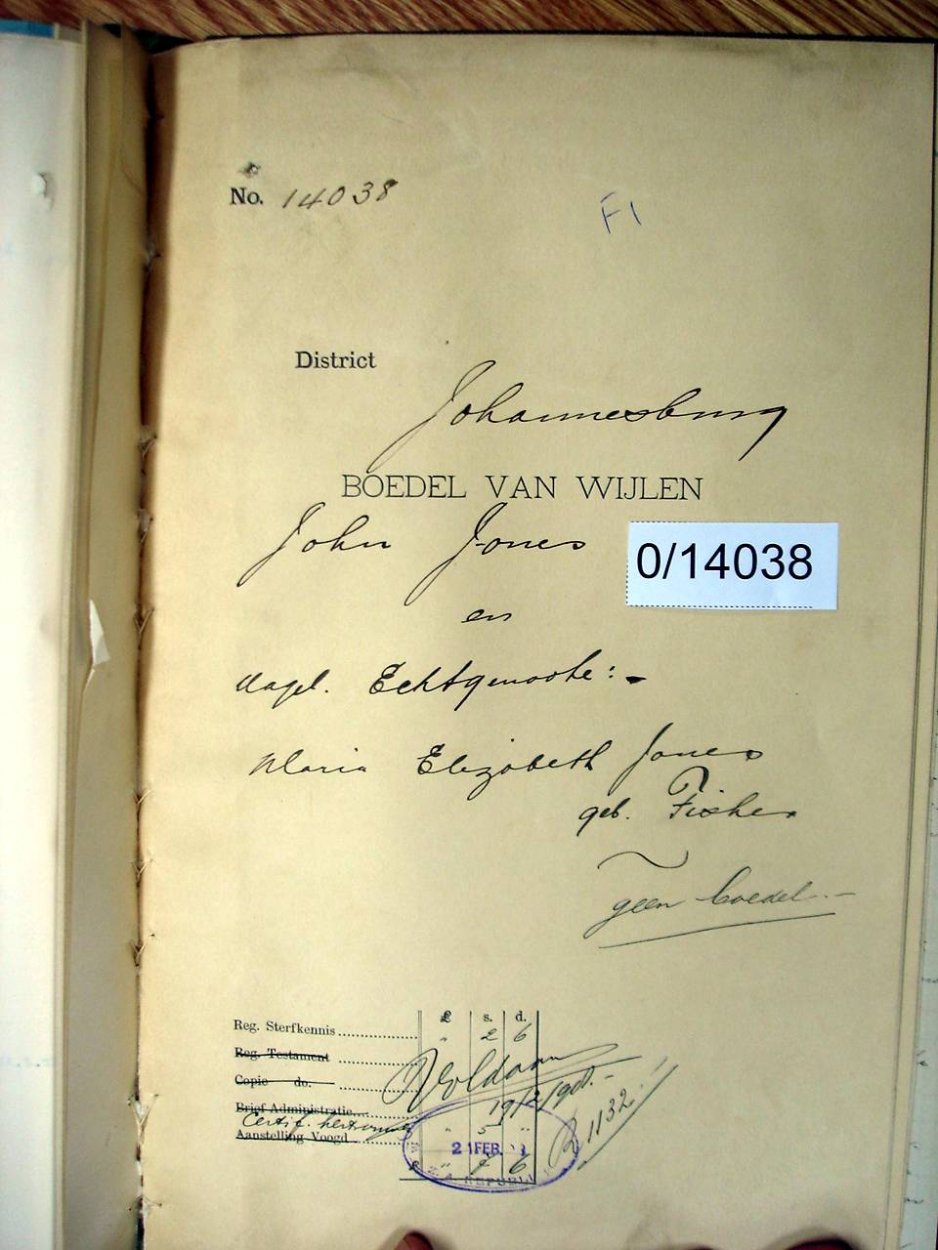 No. 14038
F1
District
Johannesburg
BOEDEL VAN WIJLEN
John Jones
0/14038
en
nagel. Echtgenoote:-
Maria Elizabeth Jones
geb. Fisher
geen boedel.-
£ s. d.
Reg. Sterfkennis " 2 6
Reg. Testament
Copie do.
Voldaan
Brief Administratie
19/2/
Certif.
" 5 "
R 1132
Aanstelling Voogd
21 FEB.
" 7 6
REPUBLIEK